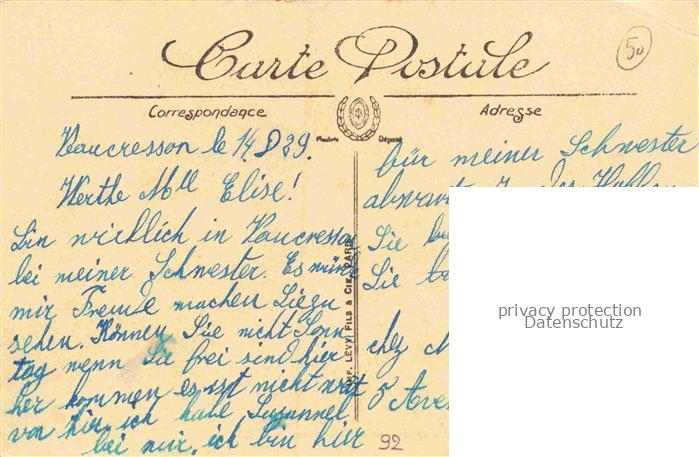 50
Carte Postale
Correspondance
Adresse
Modèle Déposé
Vaucresson le 14.8 29.
Werthe Mlle Elise!
Bin wirklich in Vaucresson
bei meiner Schwester. Es würde
mir Freude machen Sie zu
sehen. Können Sie nicht Sonn
tag wenn Sie frei sind hier
her kommen es ist nicht weit
von hier, ich habe Suzannel
bei mir, ich bin hier
IMP. LÉVY FILS & CIE, PARIS
für meiner Schwester
Sie
Sie
chez M
5 Ave
privacy protection
Datenschutz
92